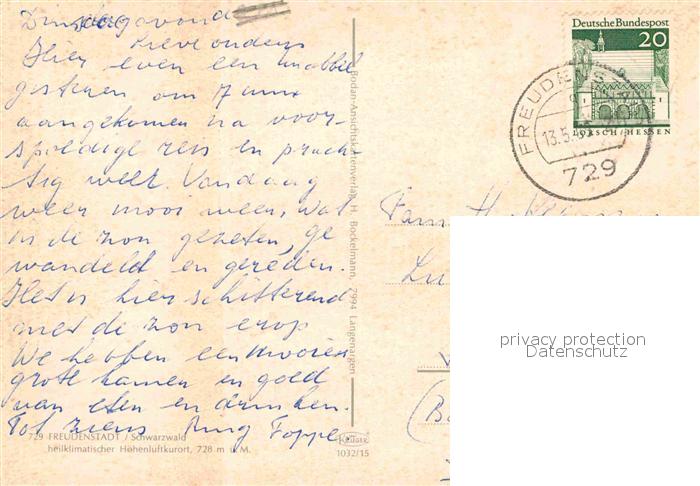 Dinsdagavond
Lieve ouders
Hier even een krabbel
gisteren om 7 uur
aangekomen na voor-
spoedige reis en prach
tig weer. Vandaag
weer mooi weer, wat
in de zon gezeten, ge
wandeld en gereden.
Het is hier schitterend
met de zon erop
We hebben een mooie
grote kamer en goed
van eten en drinken.
Tot ziens Foppe.
729 FREUDENSTADT / Schwarzwald
heilklimatischer Höhenluftkurort, 728 m ü.M.
Bodan-Ansichtskartenverlag H. Bockelmann, 7994 Langenargen
KRÜGER
1032/15
Deutsche Bundespost
20
LORSCH/HESSEN
FREUDENS
13.5.
729
Fam.
privacy protection
Datenschutz